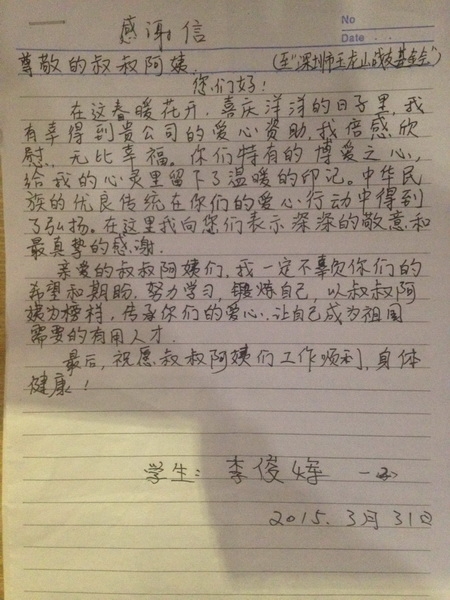 感谢信
No
Date
尊敬的叔叔阿姨
(至"深圳市王龙山战友基金会")
您们好!
在这春暖花开、喜庆洋洋的日子里,我
有幸得到贵公司的爱心资助,我倍感欣
慰、无比幸福。你们特有的博爱之心,
给我的心灵里留下了温暖的印记。中华民
族的优良传统在你们的爱心行动中得到
了弘扬。在这里我向您们表示深深的敬意和
最真挚的感谢.
亲爱的叔叔阿姨们,我一定不辜负你们的
希望和期盼.努力学习,锻炼自己,以叔叔阿
姨为榜样,传承你们的爱心.让自己成为祖国
需要的有用人才.
最后,祝愿叔叔阿姨们工作顺利,身体
健康!
学生:李俊辉
2015.3月31日